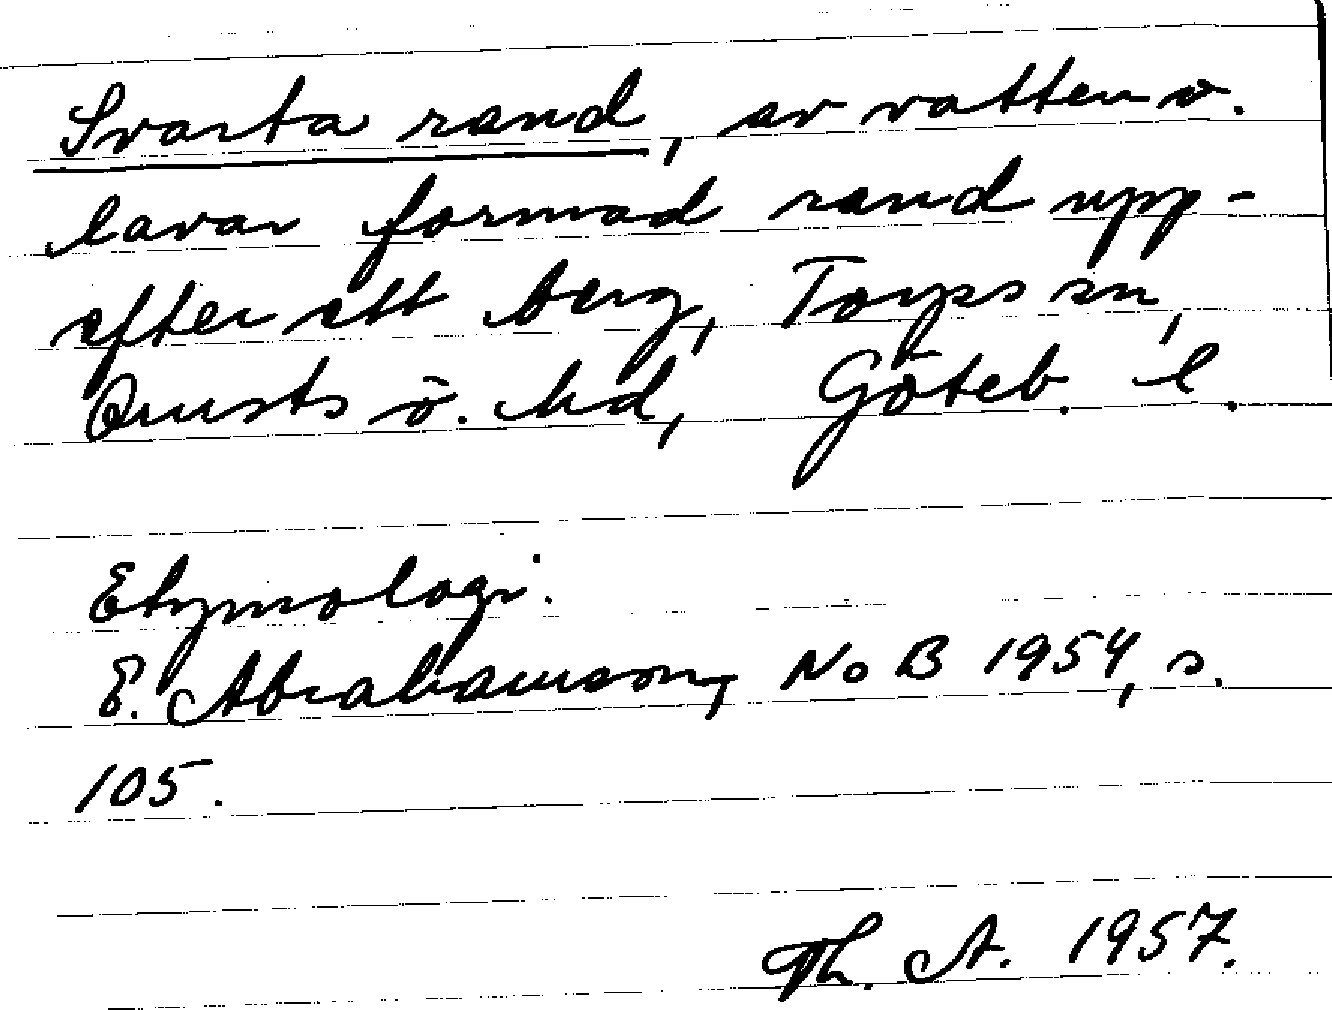 Svarta rand, av vatten o.
lavar formad rand upp-
efter ett berg, Torps sn,
Orusts ö. hd, Göteb. l.
Etymologi:
E. Abrahamson, NoB 1954, s.
105.
Th. A. 1957.